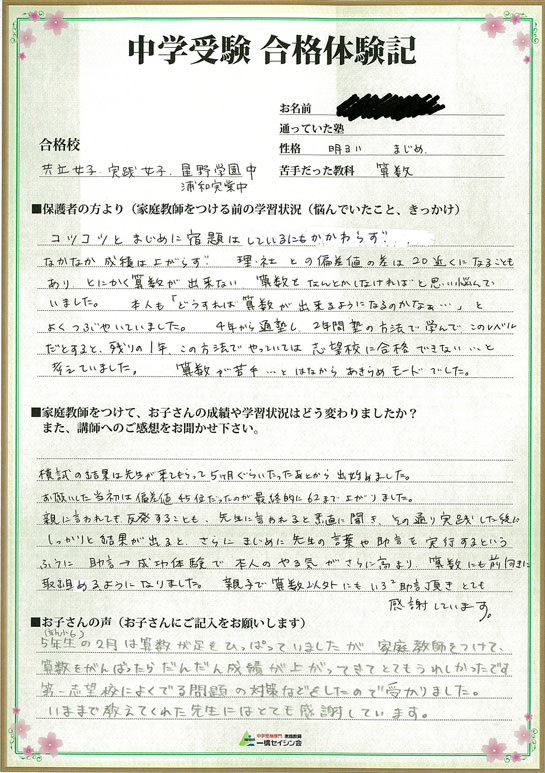 中学受験 合格体験記
お名前
通っていた塾
合格校
性格 明るい まじめ
共立女子、実践女子、星野学園中
浦和実業中
苦手だった教科 算数
■保護者の方より（家庭教師をつける前の学習状況（悩んでいたこと、きっかけ）
コツコツとまじめに宿題はしているにもかかわらず、
なかなか成績は上がらず 理・社との偏差値の差は20近くになることも
あり、とにかく算数が出来ない 算数をなんとかしなければと思い悩んで
いました。 本人も「どうすれば算数が出来るようになるのかなぁ…」と
よくつぶやいていました。 4年から通塾し、2年間塾の方法で学んで このレベル
だとすると、残りの1年、この方法でやっていては志望校に合格できない…と
考えていました。 算数が苦手…とはなからあきらめモードでした。
■家庭教師をつけて、お子さんの成績や学習状況はどう変わりましたか？
また、講師へのご感想をお聞かせ下さい。
模試の結果は先生が来てもらって5ヶ月ぐらいたったあとから出始めました。
お願いした当初は偏差値45位だったのが最終的に62まで上がりました。
親に言われても反発することも、先生に言われると素直に聞き、その通り実践した後に
しっかりと結果が出ると、さらにまじめに先生の言葉や助言を実行するという
ふうに 助言→成功体験で本人のやる気がさらに高より、算数にも前向きに
取組めるようになりました。 親子で算数以外にもいろいろ助言頂きとても
感謝しています。
■お子さんの声（お子さんにご記入をお願いします）
5年生の2月は算数が足をひっぱっていましたが 家庭教師をつけて、
算数をがんばったらだんだん成績が上がってきてとてもうれしかったです
第一志望校によくでる問題の対策などをしたので受かりました。
いままで教えてくれた先生にはとても感謝しています。
中学受験専門 家庭教師
一橋セイシン会